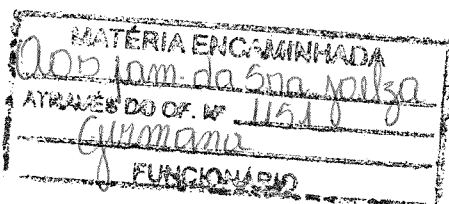 MATÉRIA ENCAMINHADA
Aos fam. da Sra Joelza
ATRAVÉS DO OF. Nº 1151
Girmana
FUNCIONÁRIO